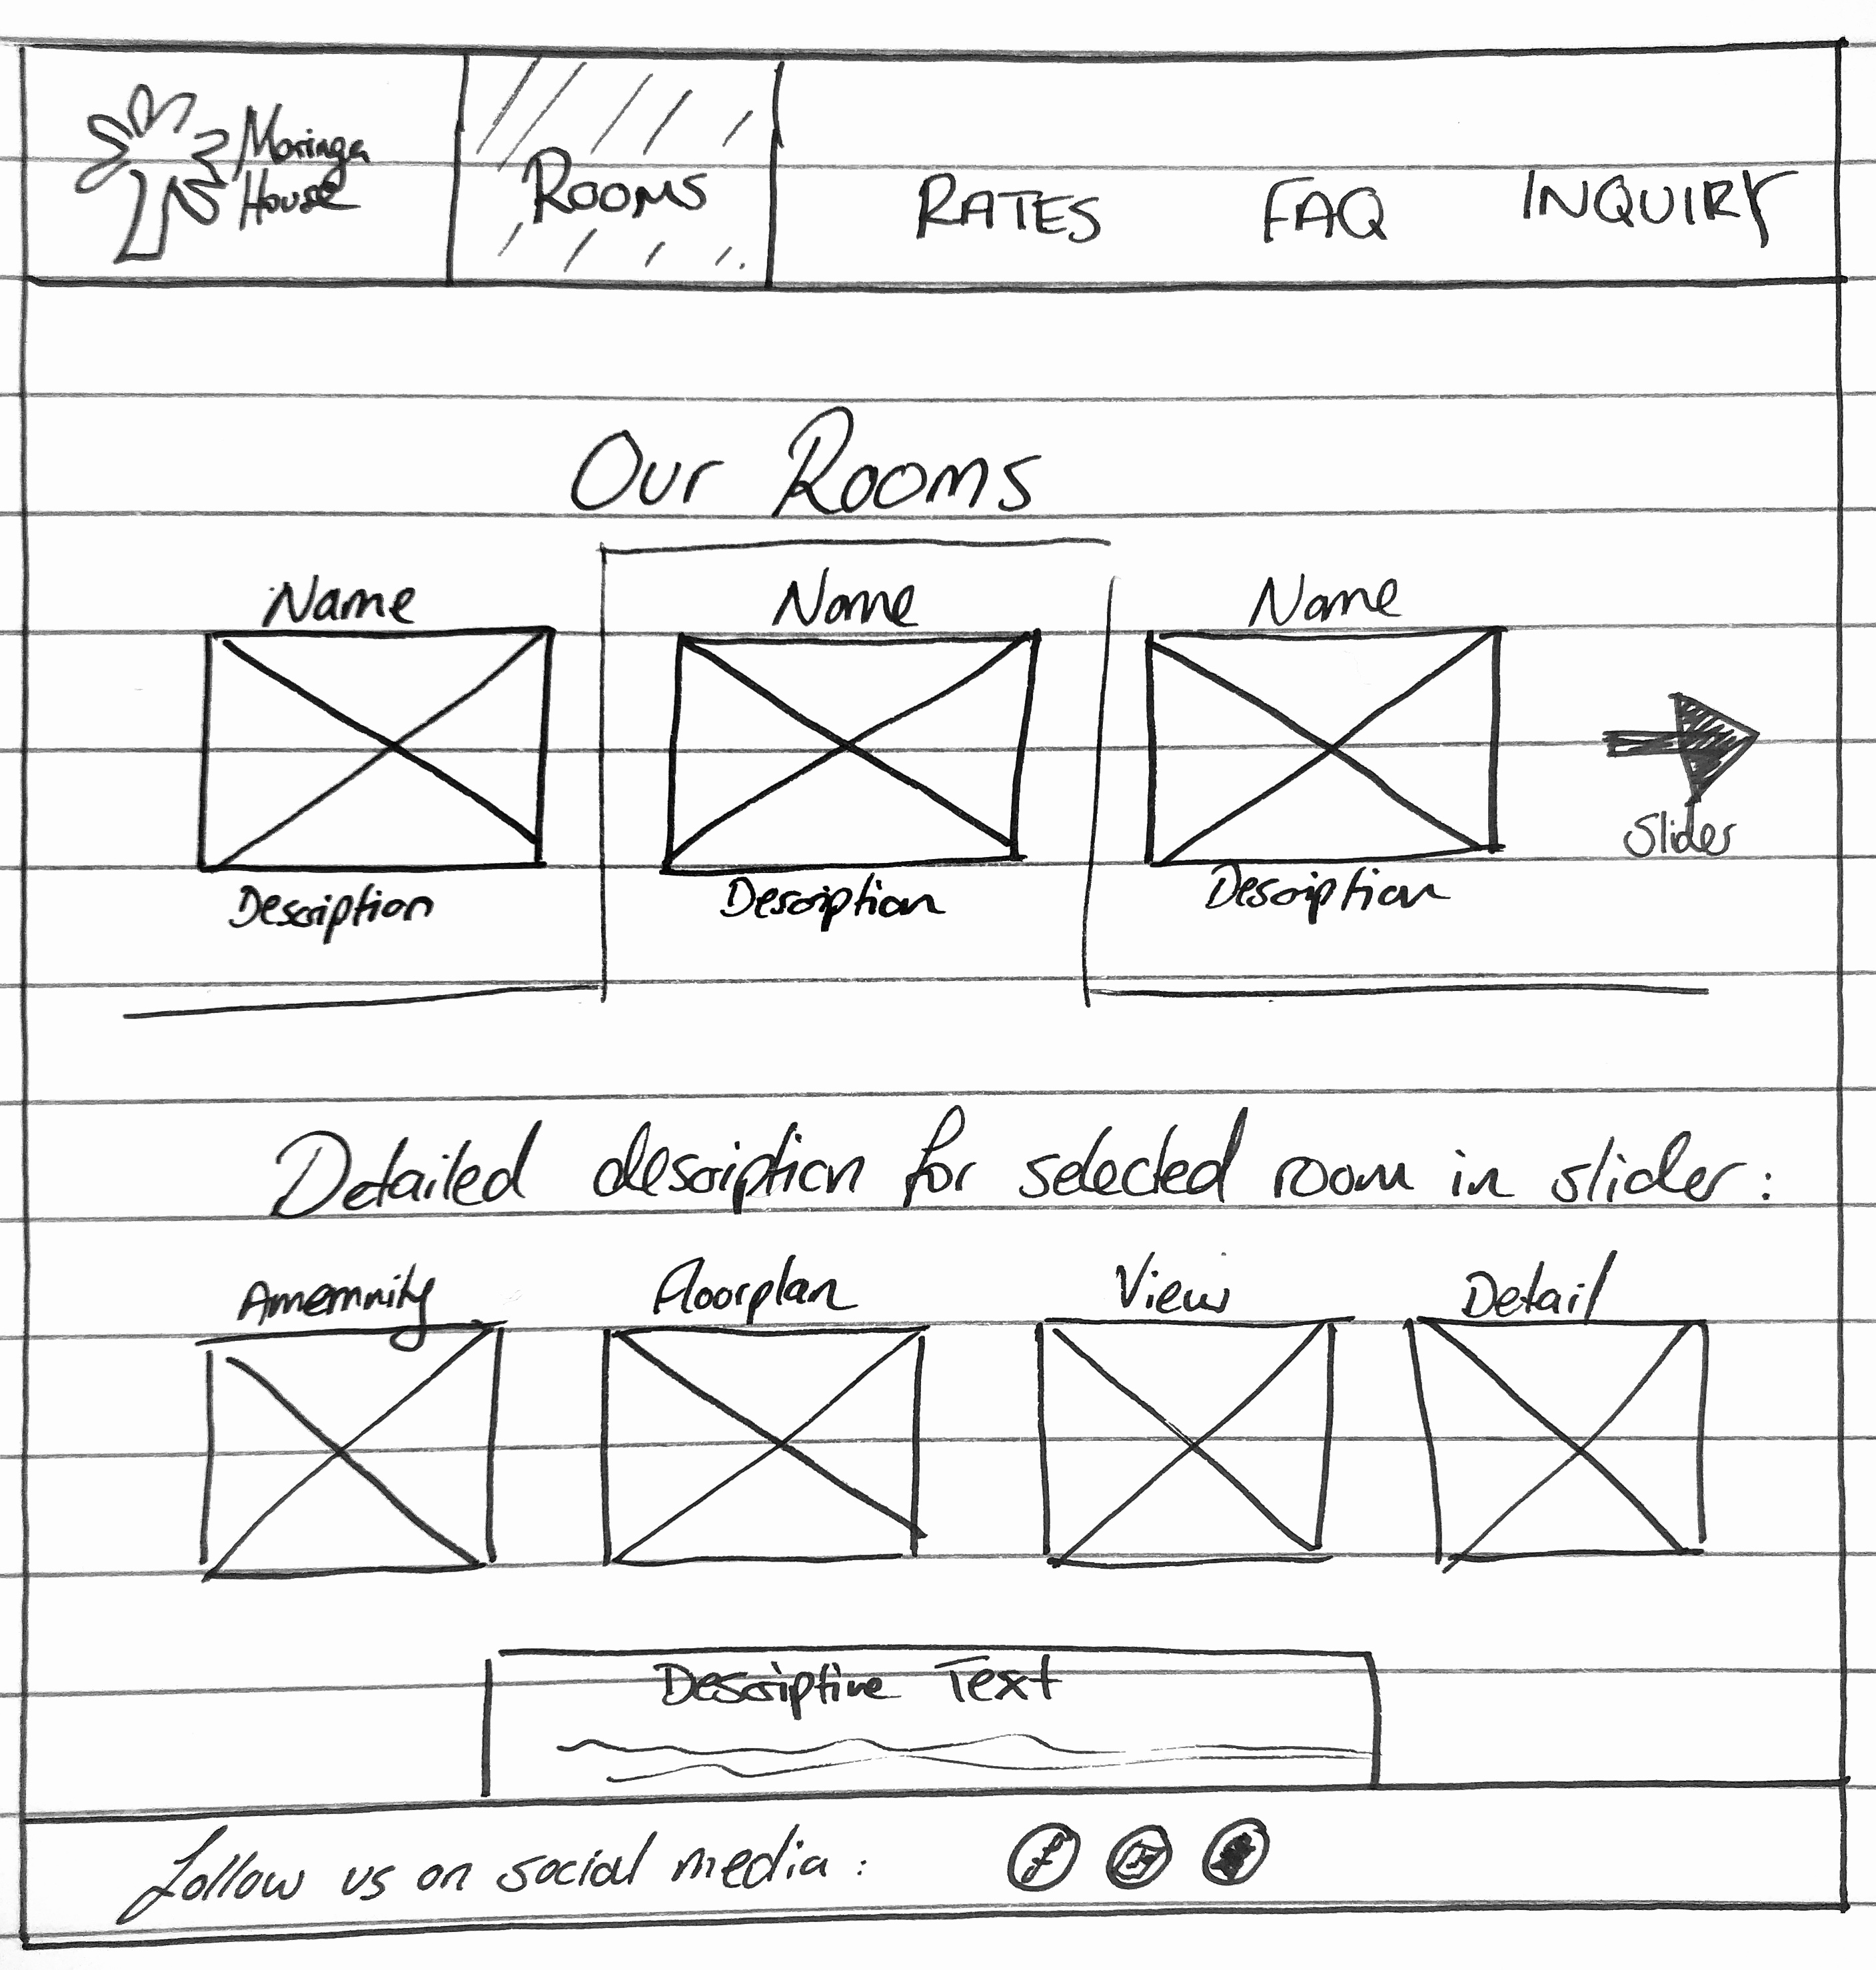 Moringa
House
ROOMS
RATES
FAQ
INQUIRY
Our Rooms
Name
Name
Name
Slider
Description
Description
Description
Detailed description for selected room in slider:
Amemnity
Floorplan
View
Detail
Descriptive Text
follow us on social media:
f